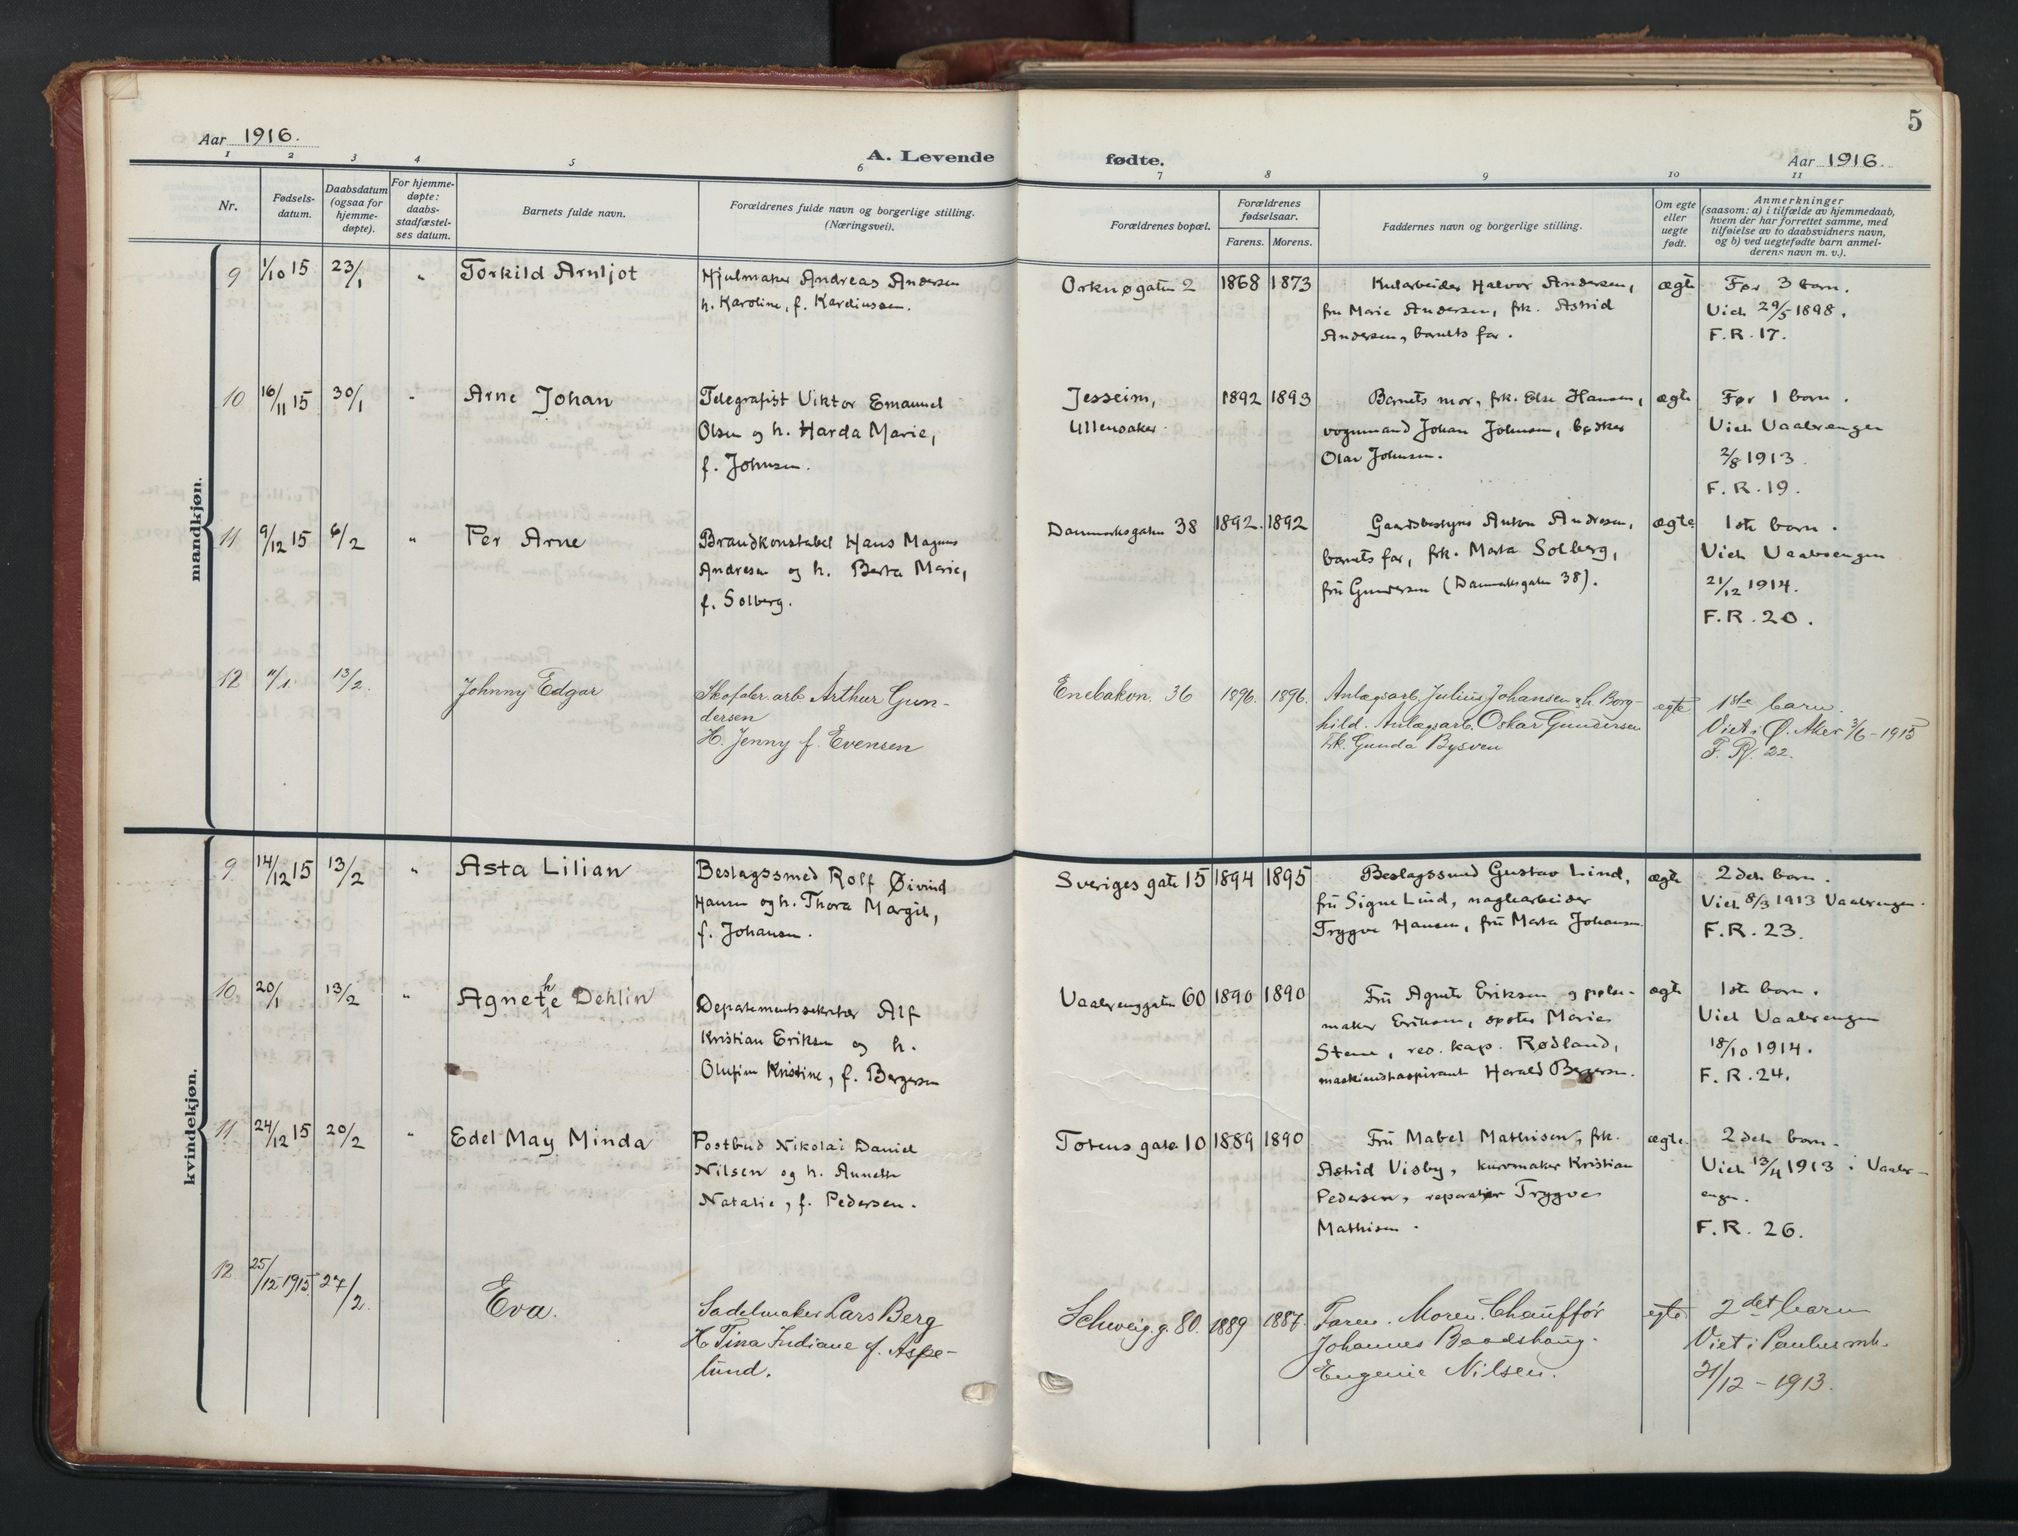 5
Aar 1916.
A. Levende fødte.
Aar 1916.
1 2 3 4 5 6 7 8 9 10 11
Nr.
Fødsels-
datum.
Daabsdatum
(ogsaa for
hjemme-
døpte).
For hjemme-
døpte:
daabs-
stadfæstel-
ses datum.
Barnets fulde navn.
Forældrenes fulde navn og borgerlige stilling.
(Næringsvei).
Forældrenes bopæl.
Forældrenes
fødselsaar.
Farens. Morens.
Faddernes navn og borgerlige stilling.
Om egte
eller
uegte
født.
Anmerkninger
(saasom: a) i tilfælde av hjemmedaab,
hvem der har forrettet samme, med
tilføielse av to daabsvidners navn,
og b) ved uegtefødte barn anmel-
derens navn m. v.).
mandkjøn.
9 1/10 15 23/1 " Torkild Arnljot
Hjulmaker Andreas Andersen
h. Karoline, f. Kardiussen.
Orknøgaten 2 1868 1873
Kularbeider Halvor Andersen,
fru Marie Andersen, frk. Astrid
Andersen, barnets far.
ægte
Før 3 barn.
Viet 29/5 1898.
F.R. 17.
10 16/11 15 30/1 " Arne Johan
Telegrafist Viktor Emanuel
Olsen og h. Harda Marie,
f. Johnsen.
Jesseim,
Ullensaker.
1892 1893
Barnets mor, frk. Else Hansen,
vognmand Johan Johnsen, bødker
Olav Johnsen.
ægte
Før 1 barn.
Viet Vaalerengen
2/8 1913.
F.R. 19.
11 9/12 15 6/2 " Per Arne
Brandkonstabel Hans Magnus
Andresen og h. Berta Marie,
f. Solberg.
Danmarksgaten 38 1892. 1892
Gaardsbestyrer Anton Andresen,
barnets far, frk. Marta Solberg,
fru Gundersen (Danmarksgaten 38).
ægte
1ste barn.
Viet Vaalerengen
21/12 1914.
F.R. 20.
12 11/1. 13/2. Johnny Edgar
Skofabr. arb. Arthur Gun-
dersen
H. Jenny f. Evensen
Enebakvn. 36 1896. 1896.
Anlægsarb. Julius Johansen & h. Borg-
hild. Anlægsarb. Oskar Gundersen
Frk. Gunda Bysven
egte
1ste barn.
Viet i Ø. Aker 3/6 - 1915
F. R. 22.
kvindekjøn.
9 14/12 15 13/2 " Asta Lilian
Beslagssmed Rolf Øivind
Hansen og h. Thora Margit,
f. Johansen.
Sveriges gate 15 1894 1895
Beslagssmed Gustav Lind,
fru Signe Lind, naglearbeider
Trygve Hansen, fru Marta Johansen.
ægte
2det barn.
Viet 8/3 1913 Vaalerengen.
F.R. 23.
10 20/1 13/2 " Agnethe Dehlin
Departementssekretær Alf
Kristian Eriksen og h.
Olufine Kristine, f. Bergersen
Vaalerenggaten 60 1890 1890
Fru Agnete Eriksen og pølse-
maker Eriksen, søster Marie
Stene, res. kap. Rødland,
maskinistaspirant Harald Bergersen.
ægte
1ste barn.
Viet Vaalerengen
18/10 1914.
F.R. 24.
11 24/12 15 20/2 " Edel May Minda
Postbud Nikolai Daniel
Nilsen og h. Annette
Natalie, f. Pedersen.
Totens gate 10 1889 1890
Fru Mabel Mathisen, frk.
Astrid Visby, kurvmaker Kristian
Pedersen, reparatør Trygve
Mathisen.
ægte
2det barn.
Viet 13/4 1913 i Vaaler-
engen.
F.R. 26.
12 25/12 1915 27/2. Eva.
Sadelmaker Lars Berg
H. Tina Indiane f. Aspe-
lund.
Schweig.g. 80. 1889 1887.
Faren. Moren. Chauffør
Johannes Baadshaug.
Eugenie Nilsen.
egte
2det barn
Viet i Paulus mh.
21/12 - 1913.